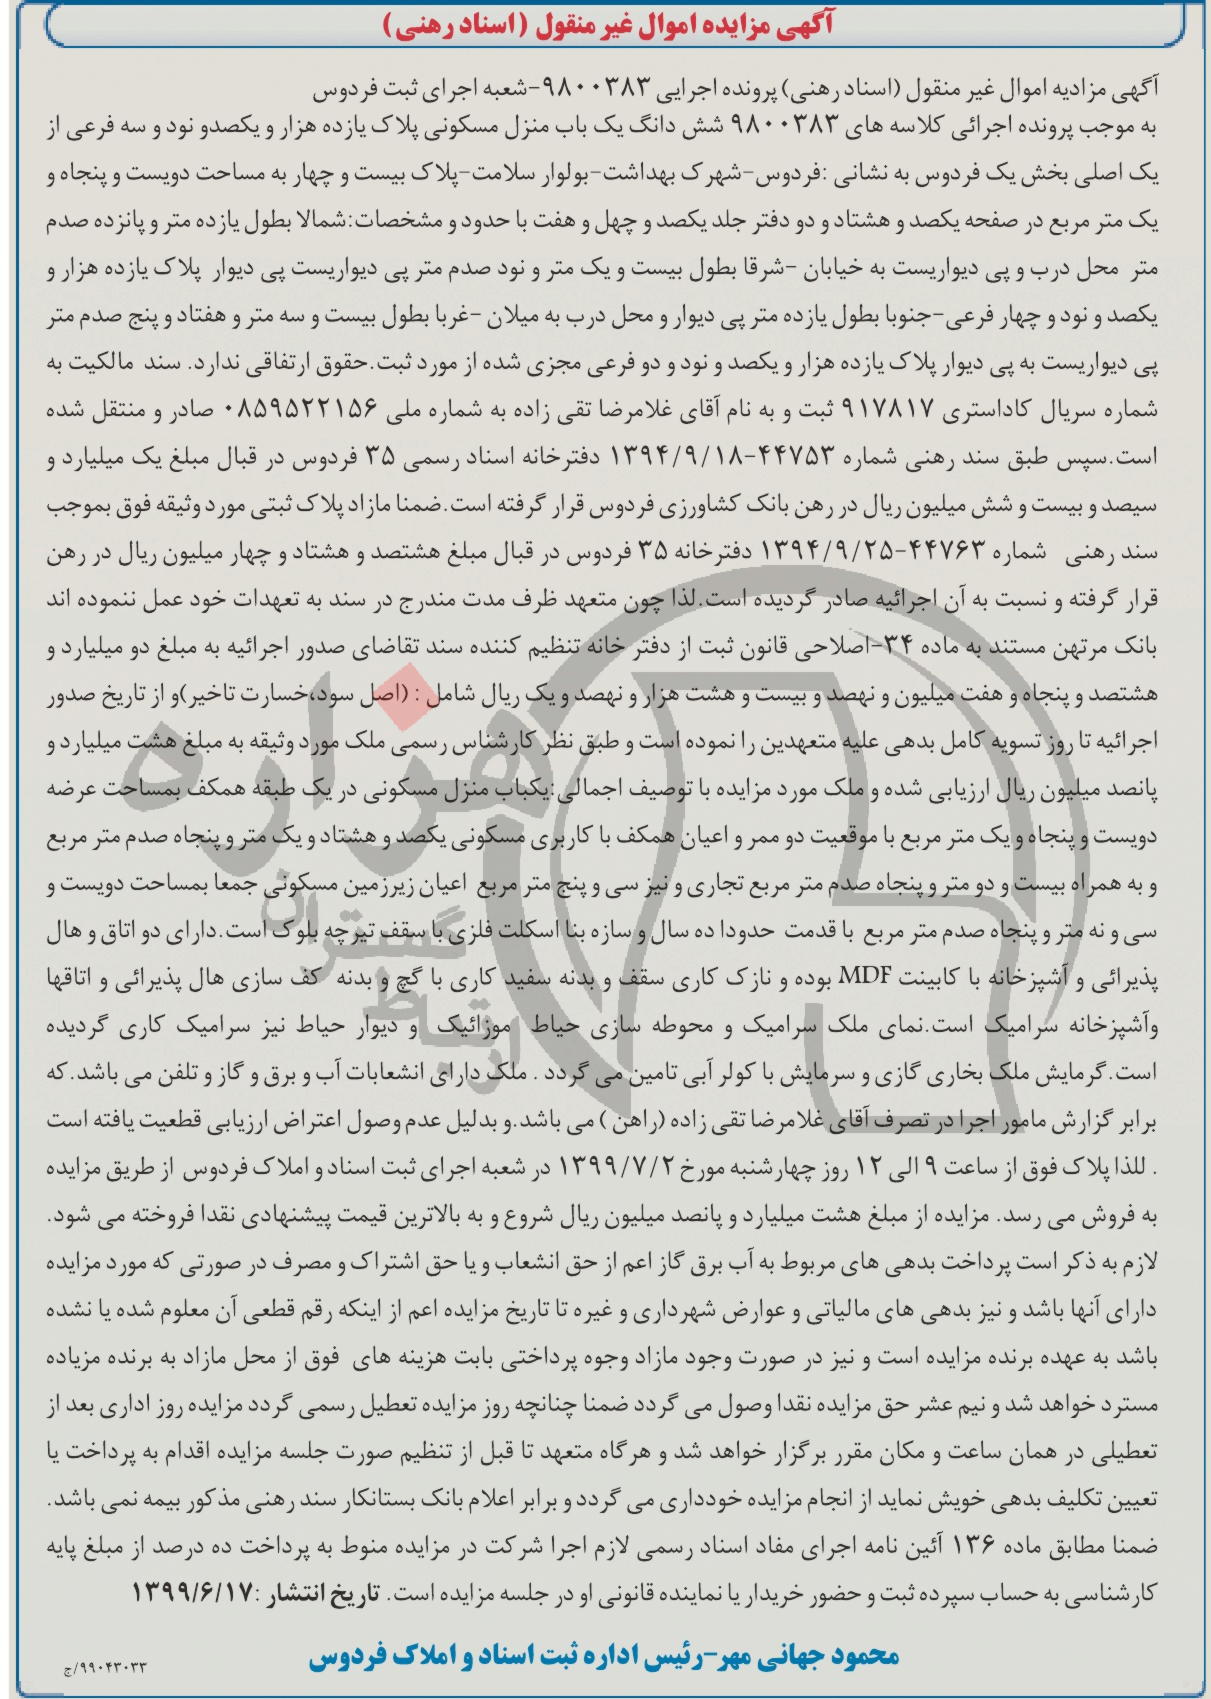 آگهی مزایده اموال غیر منقول (اسناد رهنی)
آگهی مزادیه اموال غیر منقول (اسناد رهنی) پرونده اجرایی ۹۸۰۰۳۸۳-شعبه اجرای ثبت فردوس
به موجب پرونده اجرائی کلاسه های ۹۸۰۰۳۸۳ شش دانگ یک باب منزل مسکونی پلاک یازده هزار و یکصدو نود و سه فرعی از
یک اصلی بخش یک فردوس به نشانی :فردوس-شهرک بهداشت-بولوار سلامت-پلاک بیست و چهار به مساحت دویست و پنجاه و
یک متر مربع در صفحه یکصد و هشتاد و دو دفتر جلد یکصد و چهل و هفت با حدود و مشخصات:شمالا بطول یازده متر و پانزده صدم
متر محل درب و پی دیواریست به خیابان -شرقا بطول بیست و یک متر و نود صدم متر پی دیواریست پی دیوار پلاک یازده هزار و
یکصد و نود و چهار فرعی-جنوبا بطول یازده متر پی دیوار و محل درب به میلان -غربا بطول بیست و سه متر و هفتاد و پنج صدم متر
پی دیواریست به پی دیوار پلاک یازده هزار و یکصد و نود و دو فرعی مجزی شده از مورد ثبت.حقوق ارتفاقی ندارد. سند مالکیت به
شماره سریال کاداستری ۹۱۷۸۱۷ ثبت و به نام آقای غلامرضا تقی زاده به شماره ملی ۰۸۵۹۵۲۲۱۵۶ صادر و منتقل شده
است.سپس طبق سند رهنی شماره ۴۴۷۵۳-۱۳۹۴/۹/۱۸ دفترخانه اسناد رسمی ۳۵ فردوس در قبال مبلغ یک میلیارد و
سیصد و بیست و شش میلیون ریال در رهن بانک کشاورزی فردوس قرار گرفته است.ضمنا مازاد پلاک ثبتی مورد وثیقه فوق بموجب
سند رهنی شماره ۴۴۷۶۳-۱۳۹۴/۹/۲۵ دفترخانه ۳۵ فردوس در قبال مبلغ هشتصد و هشتاد و چهار میلیون ریال در رهن
قرار گرفته و نسبت به آن اجرائیه صادر گردیده است.لذا چون متعهد ظرف مدت مندرج در سند به تعهدات خود عمل ننموده اند
بانک مرتهن مستند به ماده ۳۴-اصلاحی قانون ثبت از دفتر خانه تنظیم کننده سند تقاضای صدور اجرائیه به مبلغ دو میلیارد و
هشتصد و پنجاه و هفت میلیون و نهصد و بیست و هشت هزار و نهصد و یک ریال شامل : (اصل سود،خسارت تاخیر)و از تاریخ صدور
اجرائیه تا روز تسویه کامل بدهی علیه متعهدین را نموده است و طبق نظر کارشناس رسمی ملک مورد وثیقه به مبلغ هشت میلیارد و
پانصد میلیون ریال ارزیابی شده و ملک مورد مزایده با توصیف اجمالی:یکباب منزل مسکونی در یک طبقه همکف بمساحت عرضه
دویست و پنجاه و یک متر مربع با موقعیت دو ممر و اعیان همکف با کاربری مسکونی یکصد و هشتاد و یک متر و پنجاه صدم متر مربع
و به همراه بیست و دو متر و پنجاه صدم متر مربع تجاری و نیز سی و پنج متر مربع اعیان زیرزمین مسکونی جمعا بمساحت دویست و
سی و نه متر و پنجاه صدم متر مربع با قدمت حدودا ده سال و سازه بنا اسکلت فلزی با سقف تیرچه بلوک است.دارای دو اتاق و هال
پذیرائی و آشپزخانه با کابینت MDF بوده و نازک کاری سقف و بدنه سفید کاری با گچ و بدنه کف سازی هال پذیرائی و اتاقها
وآشپزخانه سرامیک است.نمای ملک سرامیک و محوطه سازی حیاط موزائیک و دیوار حیاط نیز سرامیک کاری گردیده
است.گرمایش ملک بخاری گازی و سرمایش با کولر آبی تامین می گردد . ملک دارای انشعابات آب و برق و گاز و تلفن می باشد.که
برابر گزارش مامور اجرا در تصرف آقای غلامرضا تقی زاده (راهن ) می باشد.و بدلیل عدم وصول اعتراض ارزیابی قطعیت یافته است
. للذا پلاک فوق از ساعت ۹ الی ۱۲ روز چهارشنبه مورخ ۱۳۹۹/۷/۲ در شعبه اجرای ثبت اسناد و املاک فردوس از طریق مزایده
به فروش می رسد. مزایده از مبلغ هشت میلیارد و پانصد میلیون ریال شروع و به بالاترین قیمت پیشنهادی نقدا فروخته می شود.
لازم به ذکر است پرداخت بدهی های مربوط به آب برق گاز اعم از حق انشعاب و یا حق اشتراک و مصرف در صورتی که مورد مزایده
دارای آنها باشد و نیز بدهی های مالیاتی و عوارض شهرداری و غیره تا تاریخ مزایده اعم از اینکه رقم قطعی آن معلوم شده یا نشده
باشد به عهده برنده مزایده است و نیز در صورت وجود مازاد وجوه پرداختی بابت هزینه های فوق از محل مازاد به برنده مزیاده
مسترد خواهد شد و نیم عشر حق مزایده نقدا وصول می گردد ضمنا چنانچه روز مزایده تعطیل رسمی گردد مزایده روز اداری بعد از
تعطیلی در همان ساعت و مکان مقرر برگزار خواهد شد و هرگاه متعهد تا قبل از تنظیم صورت جلسه مزایده اقدام به پرداخت یا
تعیین تکلیف بدهی خویش نماید از انجام مزایده خودداری می گردد و برابر اعلام بانک بستانکار سند رهنی مذکور بیمه نمی باشد.
ضمنا مطابق ماده ۱۳۶ آئین نامه اجرای مفاد اسناد رسمی لازم اجرا شرکت در مزایده منوط به پرداخت ده درصد از مبلغ پایه
کارشناسی به حساب سپرده ثبت و حضور خریدار یا نماینده قانونی او در جلسه مزایده است. تاریخ انتشار :۱۳۹۹/۶/۱۷
محمود جهانی مهر-رئیس اداره ثبت اسناد و املاک فردوس
۹۹۰۴۳۰۳۳/ج
هزاره
گستران
ارتباط